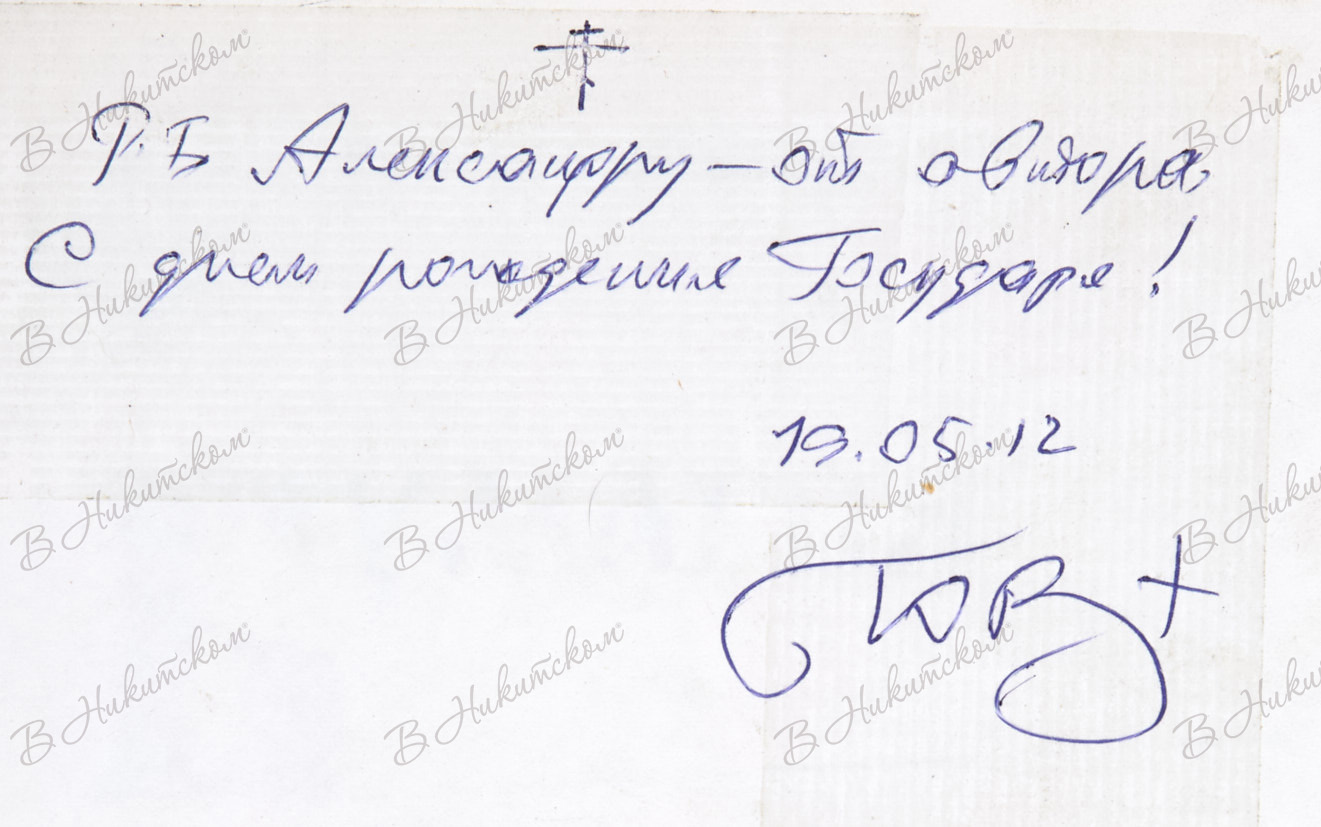 Р.Б Александру — от автора,
С днем рождения Государя!
19.05.12